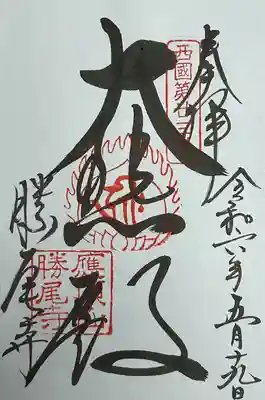 奉拝
令和六年五月十九日
西國第廿三
大悲殿
應頂山
勝尾寺
勝尾寺